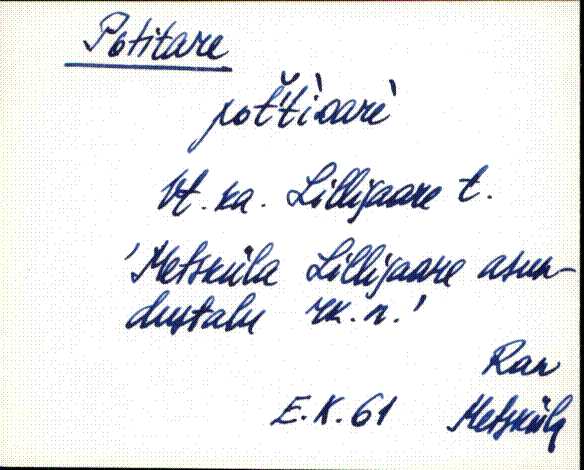 Potitare
pot't'i·oare`
Vt. ka. Lillijaare t.
'Metsküla Lillijaare asun-
dustalu rk. n.'
Ran
E.K. 61 Metsküla